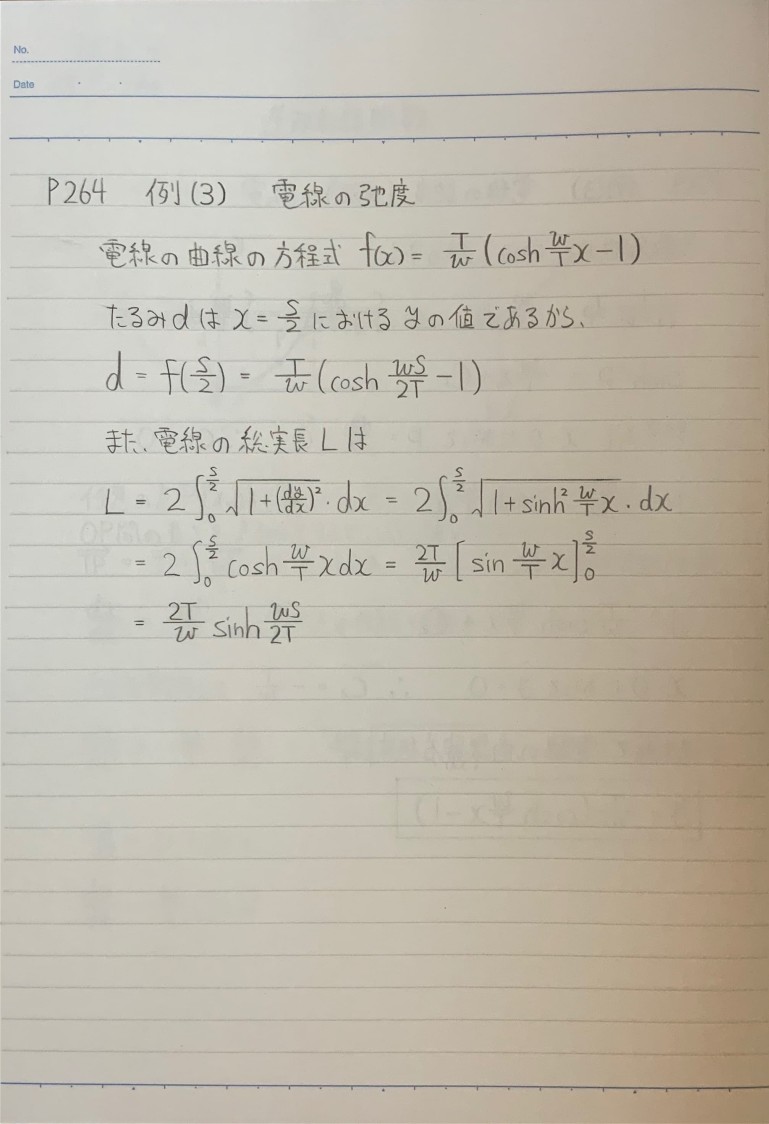 No.
Date . .
P264 例(3) 電線の弛度
電線の曲線の方程式 f(x) = T/w (cosh w/T x − 1)
たるみdは x = S/2 における yの値であるから、
d = f(S/2) = T/w (cosh wS/2T − 1)
また、電線の総実長Lは
L = 2∫₀^{S/2} √(1+(dy/dx)²)・dx = 2∫₀^{S/2} √(1+sinh² w/T x)・dx
= 2∫₀^{S/2} cosh w/T x dx = 2T/w [sin w/T x]₀^{S/2}
= 2T/w sinh wS/2T